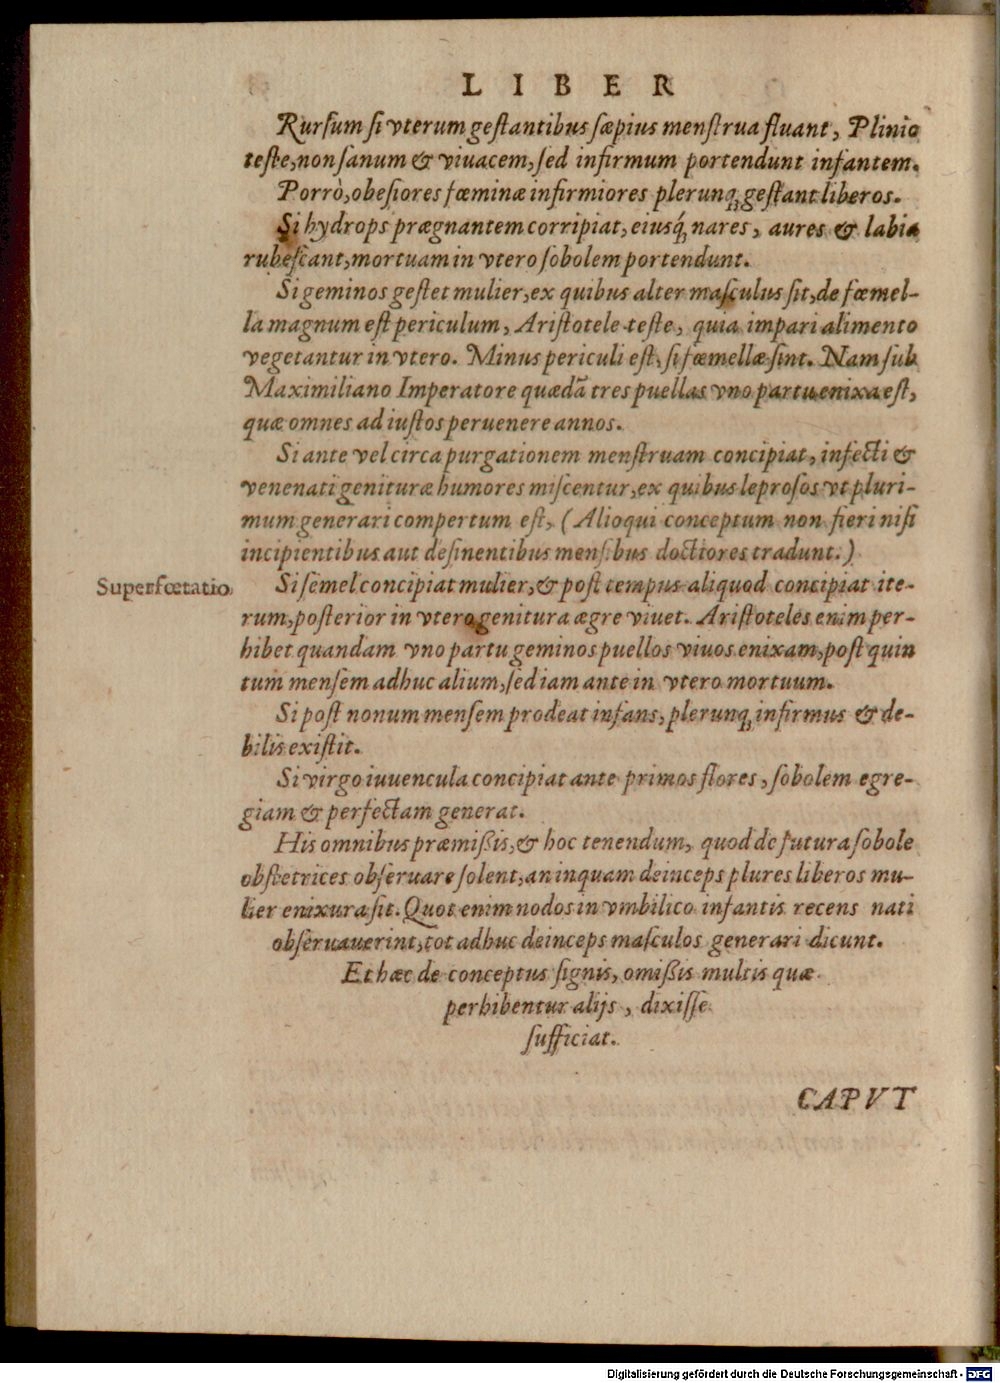 LIBER
Rursum si vterum gestantibus sæpius menstrua fluant, Plinio
teste, non sanum & viuacem, sed infirmum portendunt infantem.
Porrò, obesiores fœminæ infirmiores plerunq; gestant liberos.
Si hydrops prægnantem corripiat, eiusq́; nares, aures & labia
rubescant, mortuam in vtero sobolem portendunt.
Si geminos gestet mulier, ex quibus alter masculus sit, de fœmel-
la magnum est periculum, Aristotele teste, quia impari alimento
vegetantur in vtero. Minus periculi est, si fœmellæ sint. Nam sub
Maximiliano Imperatore quædã tres puellas vno partu enixa est,
quæ omnes ad iustos peruenere annos.
Si ante vel circa purgationem menstruam concipiat, infecti &
venenati genituræ humores miscentur, ex quibus leprosos vt pluri-
mum generari compertum est, (Alioqui conceptum non fieri nisi
incipientibus aut desinentibus mensibus doctiores tradunt.)
Superfœtatio.
Si semel concipiat mulier, & post tempus aliquod concipiat ite-
rum, posterior in vtero genitura ægre viuet. Aristoteles enim per-
hibet quandam vno partu geminos puellos viuos enixam, post quin
tum mensem adhuc alium, sed iam ante in vtero mortuum.
Si post nonum mensem prodeat infans, plerunq; infirmus & de-
bilis existit.
Si virgo iuuencula concipiat ante primos flores, sobolem egre-
giam & perfectam generat.
His omnibus præmißis, & hoc tenendum, quod de futura sobole
obstetrices obseruare solent, an inquam deinceps plures liberos mu-
lier enixura sit. Quot enim nodos in vmbilico infantis recens nati
obseruauerint, tot adhuc deinceps masculos generari dicunt.
Et hæc de conceptus signis, omißis multis quæ
perhibentur alijs, dixisse
sufficiat.
CAPVT
Digitalisierung gefördert durch die Deutsche Forschungsgemeinschaft - DFG